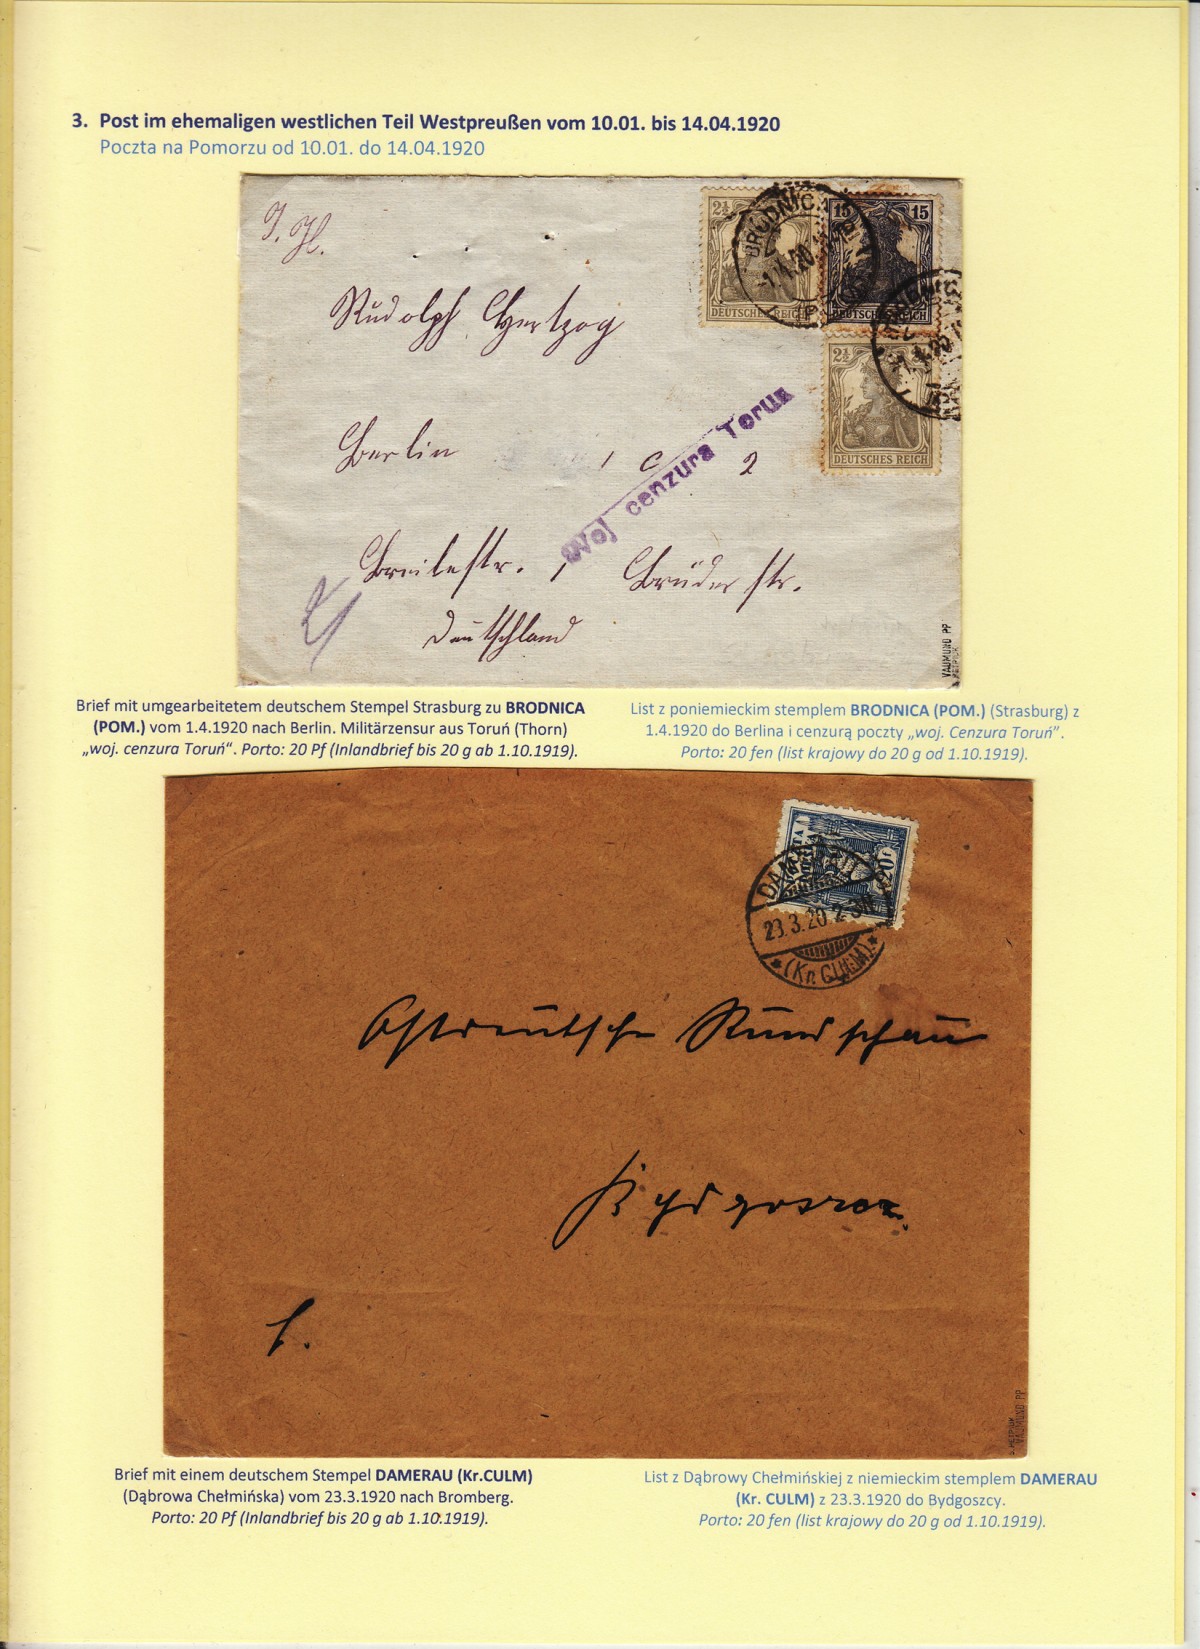 3. Post im ehemaligen westlichen Teil Westpreußen vom 10.01. bis 14.04.1920
Poczta na Pomorzu od 10.01. do 14.04.1920
J. H.
2½
15 15
DEUTSCHES REICH
DEUTSCHES REICH
BRODNIC
1.4.20
2½
DEUTSCHES REICH
Rudolph Hertzog
Berlin C 2
Woj cenzura Torun
Breitestr. Brüderstr.
Deutschland
VAUMUND PP
Brief mit umgearbeitetem deutschem Stempel Strasburg zu BRODNICA
(POM.) vom 1.4.1920 nach Berlin. Militärzensur aus Toruń (Thorn)
„woj. cenzura Toruń“. Porto: 20 Pf (Inlandbrief bis 20 g ab 1.10.1919).
List z poniemieckim stemplem BRODNICA (POM.) (Strasburg) z
1.4.1920 do Berlina i cenzurą poczty „woj. Cenzura Toruń”.
Porto: 20 fen (list krajowy do 20 g od 1.10.1919).
DAMERAU
23.3.20.2-3N
* (Kr. CULM) *
20 F
Ostdeutsche Rundschau
Bydgoszcz.
VAUMUND PP
Brief mit einem deutschem Stempel DAMERAU (Kr.CULM)
(Dąbrowa Chełmińska) vom 23.3.1920 nach Bromberg.
Porto: 20 Pf (Inlandbrief bis 20 g ab 1.10.1919).
List z Dąbrowy Chełmińskiej z niemieckim stemplem DAMERAU
(Kr. CULM) z 23.3.1920 do Bydgoszcy.
Porto: 20 fen (list krajowy do 20 g od 1.10.1919).